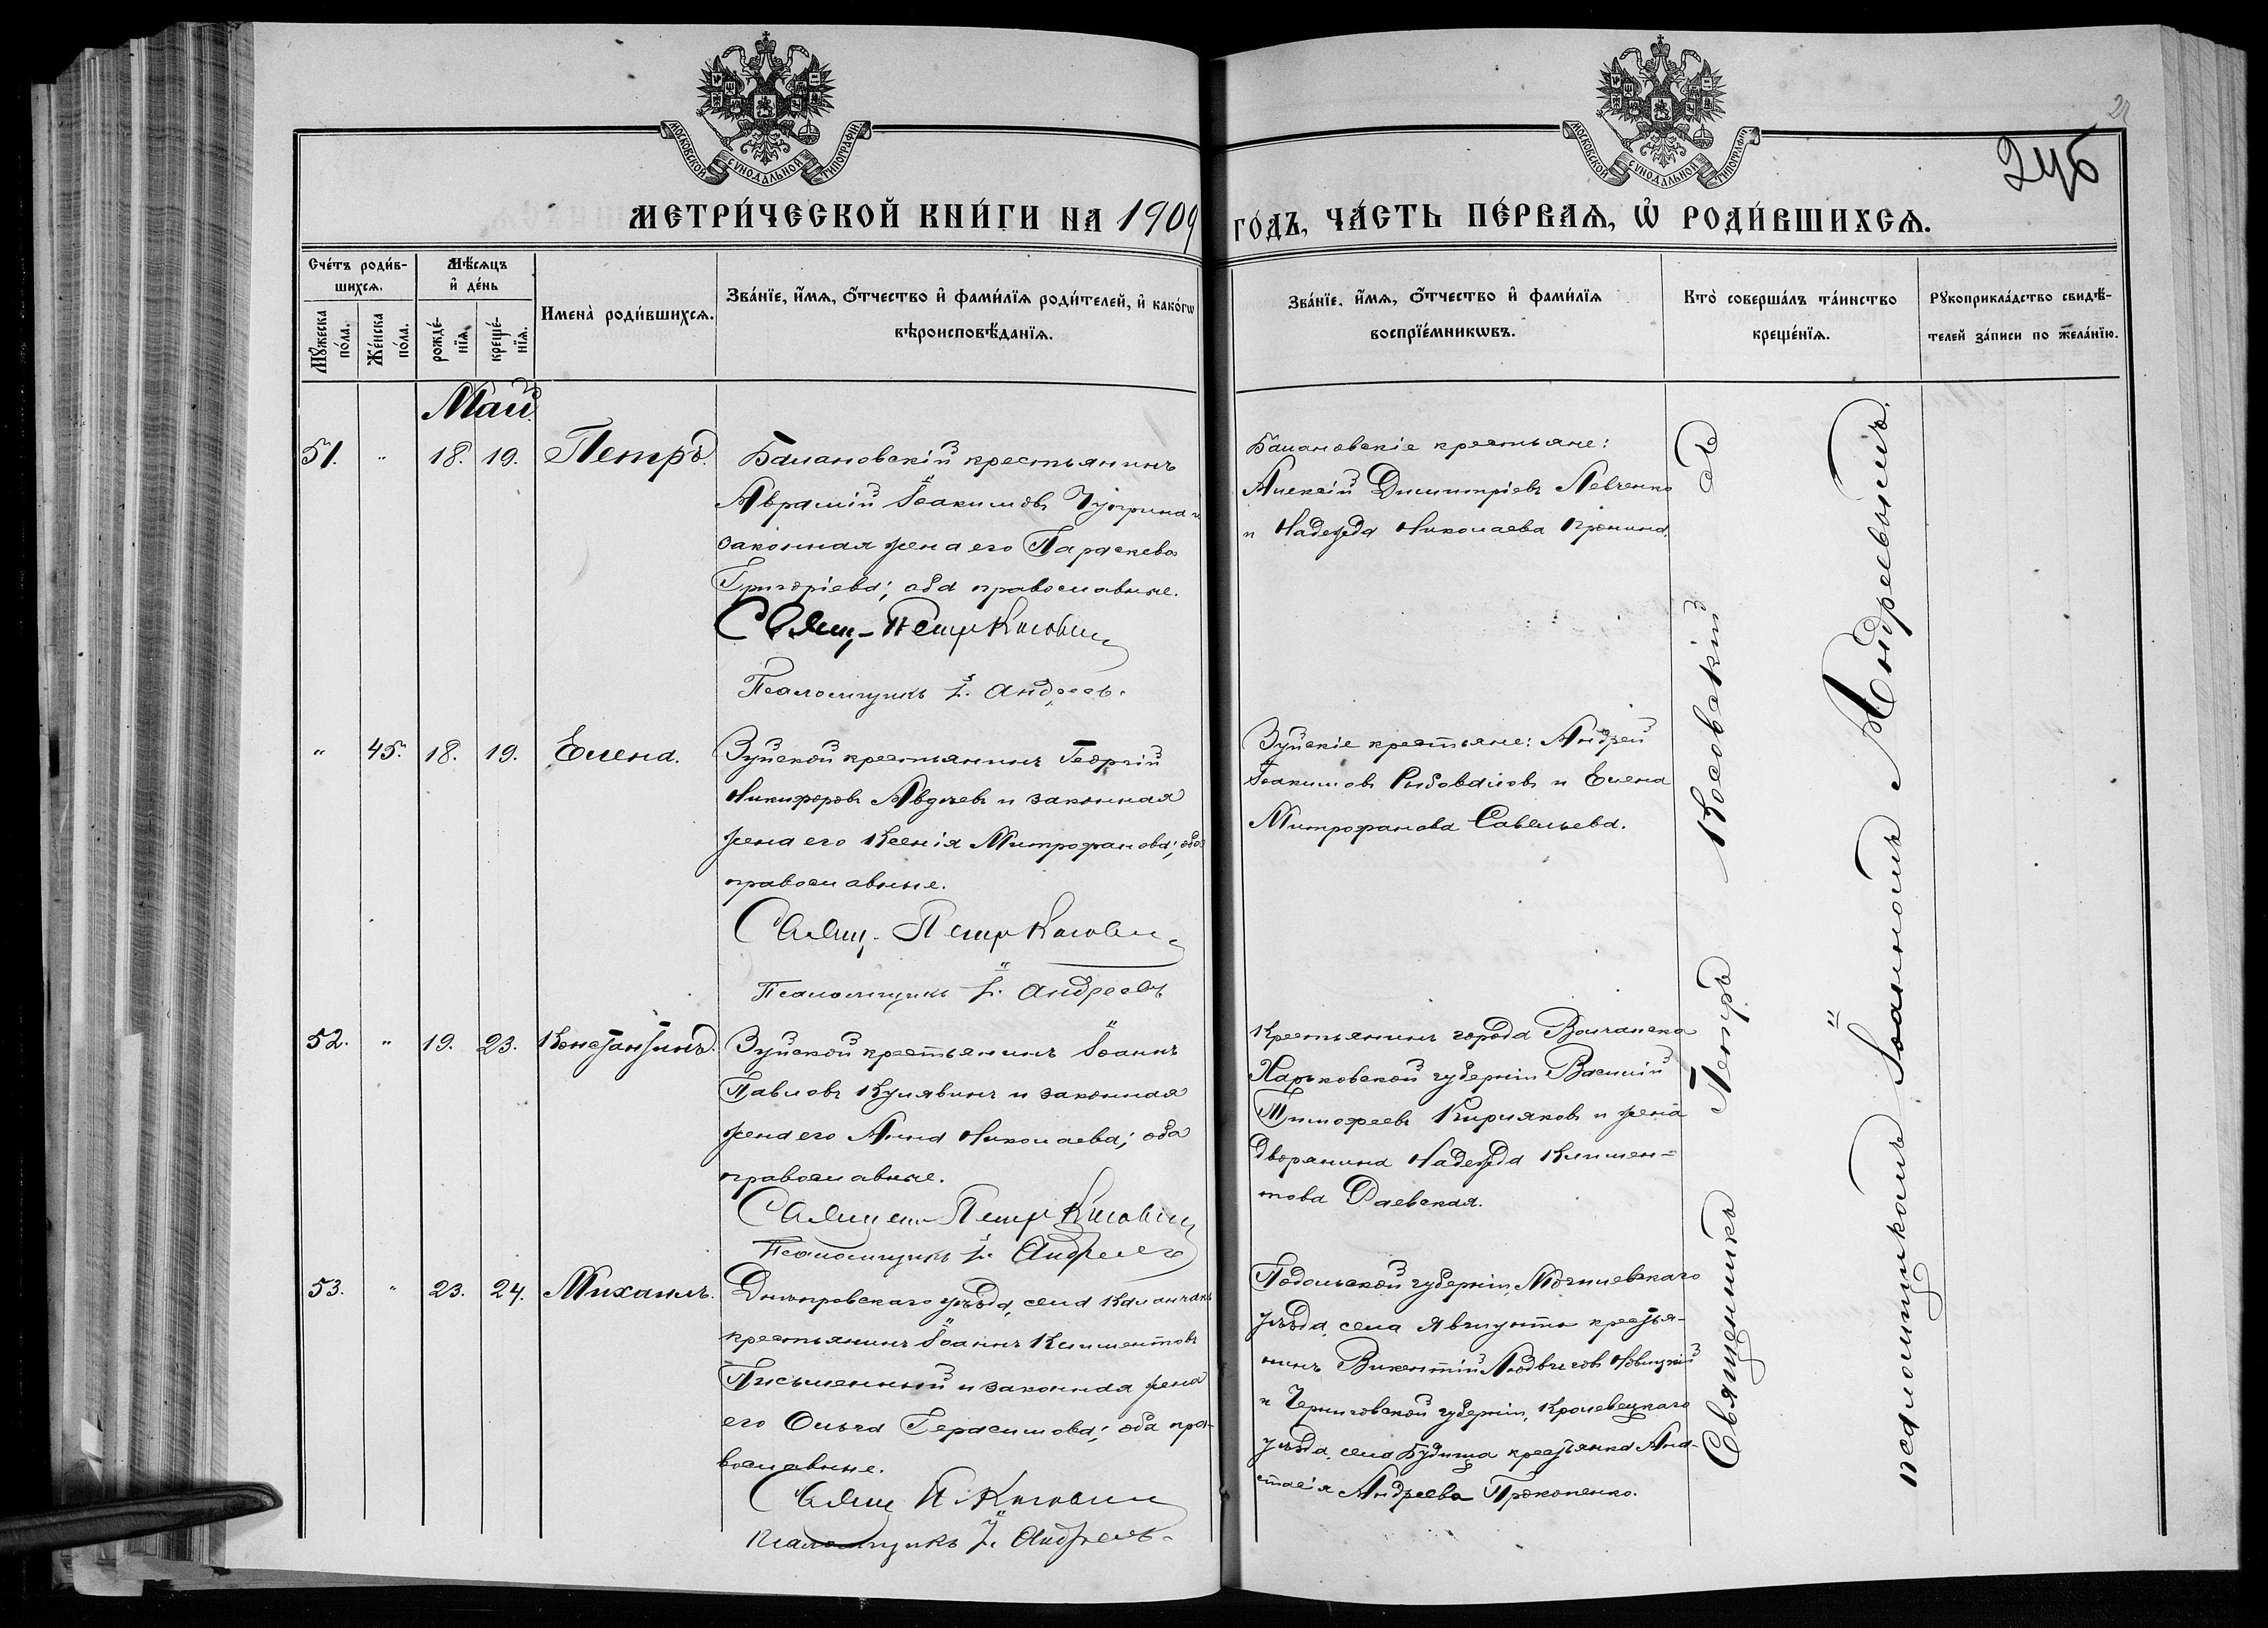 МОСКОВСКОЙ СѴНОДАЛЬНОЙ ТИПОГРАФІИ
МОСКОВСКОЙ СѴНОДАЛЬНОЙ ТИПОГРАФІИ
246
МЕТРИ́ЧЕСКОЙ КНИ́ГИ НА 1909 ГО́ДЪ, ЧА́СТЬ ПЕ́РВАѦ, Ѡ҆ РОДИ́ВШИХСѦ.
Сче́тъ роди́в-
шихсѧ.
Мꙋ́жеска по́ла.
Же́нска по́ла.
Мѣ́сѧцъ
и҆ де́нь
рожде́-
нїѧ.
креще́-
нїѧ.
Имена̀ роди́вшихсѧ.
Зва́нїе, и҆́мѧ, ѻ҆́тчество и҆ фами́лїѧ роди́телей, и҆ како́гѡ
вѣроисповѣ́данїѧ.
Зва́нїе, и҆́мѧ, ѻ҆́тчество и҆ фами́лїѧ
воспрїе́мникѡвъ.
Кто̀ соверша́лъ та́инство
креще́нїѧ.
Рꙋкоприкла́дство свидѣ́-
телей за́писи по жела́нїю.
Май
51. " 18. 19. Петръ.
Балановскій крестьянинъ
Аврамій Іоакимовъ Чугрина и
законная жена его Параскева
Григоріева; оба православные.
Свящ. Петр Косовскій
Псаломщикъ І. Андреевъ.
Балановскіе крестьяне:
Алексій Димитріевъ Левченко
и Надежда Николаева
" 45. 18. 19. Елена.
Зуйской крестьянинъ Георгій
Никифоровъ Авдѣевъ и законная
жена его Ксенія Митрофанова; оба
православные.
Свящ. Петр Косовскій
Псаломщикъ І. Андреевъ
Зуйскіе крестьяне: Андрей
Іоакимовъ Рыбоваловъ и Елена
Митрофанова Савельева.
52. " 19. 23. Константинъ.
Зуйской крестьянинъ Іоаннъ
Павловъ Кулявинъ и законная
жена его Анна Николаева; оба
православные.
Священ. Петр Косовскій
Псаломщикъ І. Андреевъ
Крестьянинъ города Волчанска
Харьковской губерніи Василій
Тимофеевъ Кирияковъ и жена
дворянина Надежда Климен-
това Даевская.
53. " 23. 24. Михаилъ.
Днѣпровскаго уѣзда, села Каланчакъ
крестьянинъ Іоаннъ Климентовъ
Письменный и законная жена
его Ольга Герасимова; оба пра-
вославные.
Свящ П. Косовскій
псаломщикъ І. Андреевъ.
Подольской губерніи, Могилевскаго
уѣзда, села крестья-
нинъ Викентій Людвиговъ Новицкій
и Черниговской губерніи, Кролевецкаго
уѣзда, села Будища крестьянка Ана-
стасія Андреева Прокопенко.
Священникъ Петръ Косовскій съ
псаломщикомъ Іоанномъ Андреевымъ.